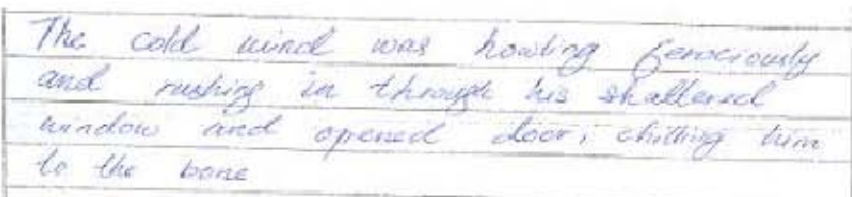 The cold wind was howling ferociously
and rushing in through his shattered
window and opened door, chilling him
to the bone